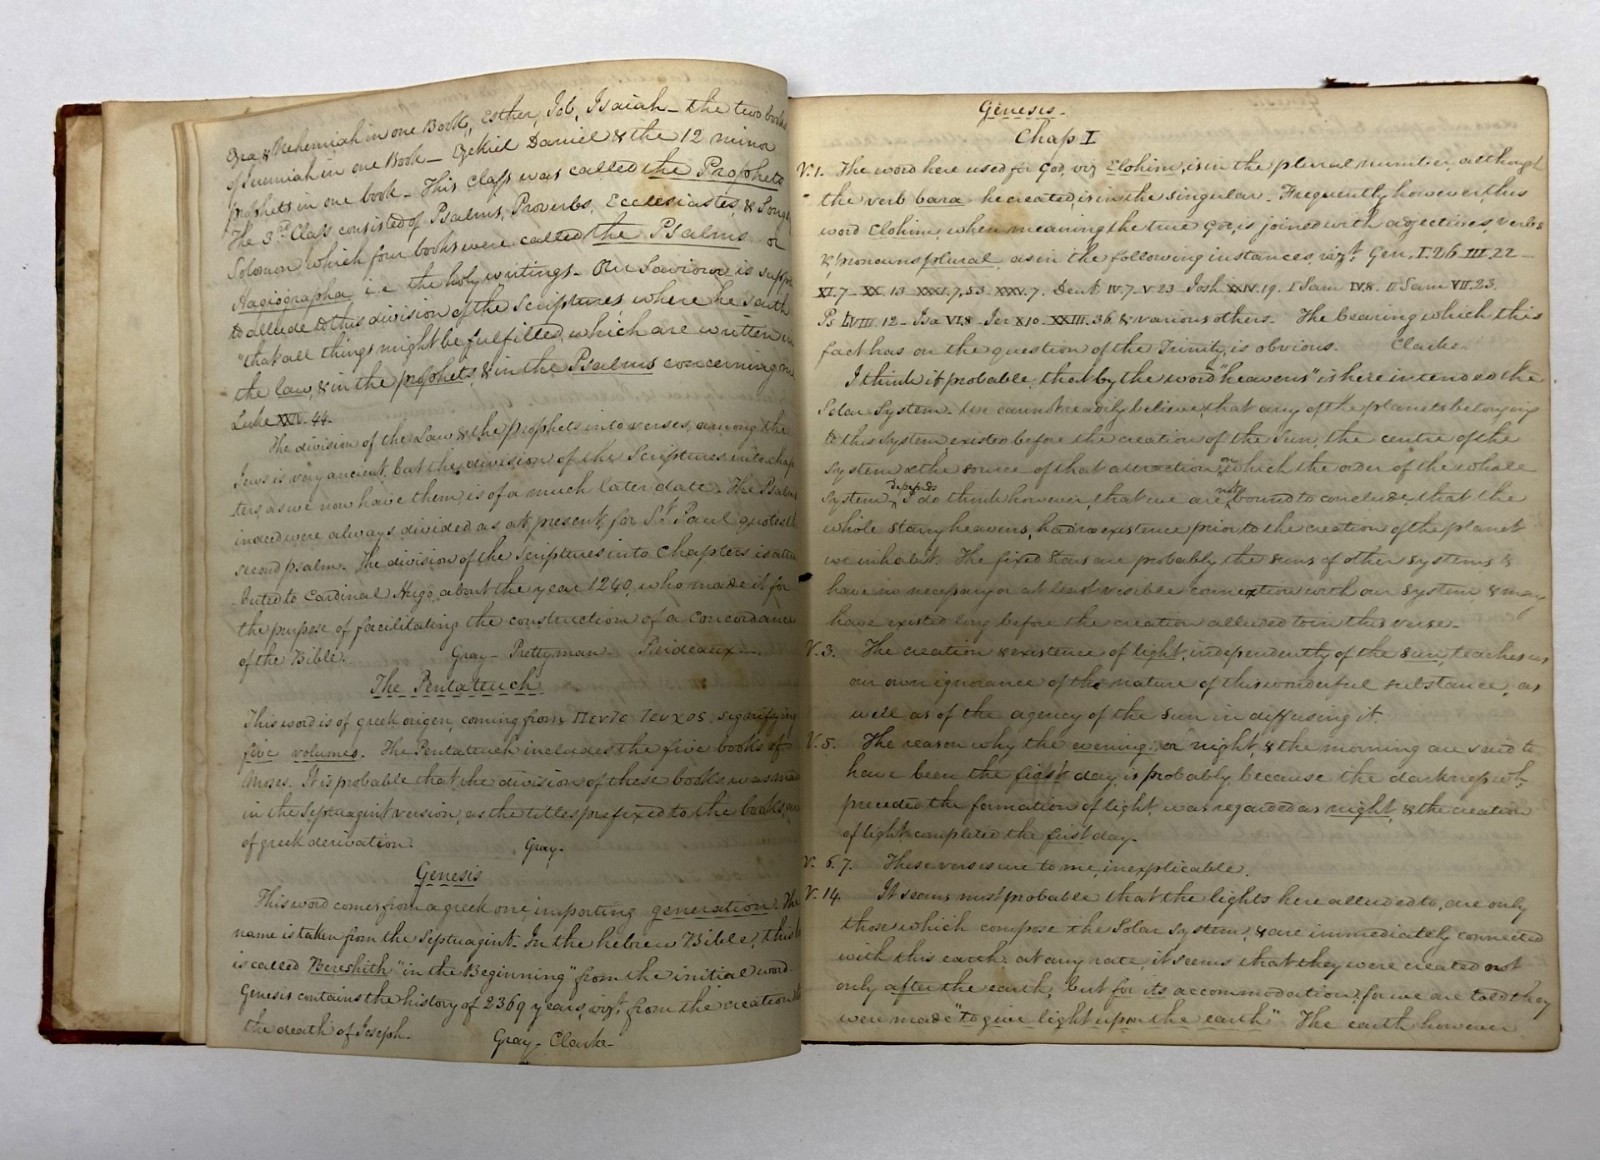 Ezra & Nehemiah in one Book, Esther, Job, Isaiah - the two books
of Jeremiah in one Book - Ezekiel Daniel & the 12 minor
prophets in one book - This Class was called the Prophets
The 3rd Class consisted of Psalms, Proverbs, Ecclesiastes, & Song
Solomon, which four books were called the Psalms or
Hagiographa, i.e. the holy writings - Our Saviour is suppo
to allude to this division of the Scriptures where he saith
"that all things might be fulfilled, which are written in
the law, & in the prophets, & in the Psalms concerning me
Luke XXIV. 44.
The division of the Law & the prophets into verses, among the
Jews is very ancient, but the division of the Scriptures into chap
ters as we now have them, is of a much later date. The Psalms
indeed were always divided as at present, for St Paul quotes the
second psalm. The division of the Scriptures into Chapters is attri
buted to Cardinal Hugo, about the year 1240, who made it for
the purpose of facilitating the construction of a Concordance
of the Bible. Gray - Prettyman - Prideaux -
The Pentateuch
This word is of greek origen, coming from Πεντε Τευχος, signifying
five volumes. The Pentateuch includes the five books of
Moses. It is probable that the division of these books was made
in the Septuagint version, as the titles prefixed to the books, are
of greek derivation. Gray.
Genesis
This word comes from a greek one, importing generation. The
name is taken from the Septuagint - In the hebrew Bible, this
is called Bereshith "in the Beginning" from the initial word.
Genesis contains the history of 2369 years, vizt. from the creation to
the death of Joseph. Gray - Clarke -
Genesis -
Chap I
V. 1. The word here used for God, viz Elohim, is in the plural number, although
the verb bara - he created, is in the singular - Frequently however, this
word Elohim, when meaning the true God, is joined with adjectives, verbs
& pronouns plural, as in the following instances, vizt. Gen. I. 26 III. 22 -
XI. 7 - XX. 13 - XXXI. 7, 53 - XXXV. 7. Deut IV. 7 - V 23 Josh XXIV. 19. I Sam IV. 8. II Sam VII. 23.
Ps LVIII. 12 - Isa VI. 8 - Jer X 10 - XXIII. 36 & various others - The bearing which this
fact has on the question of the Trinity, is obvious. Clarke.
I think it probable, that by the word "heavens" is here intended the
Solar System. We cannot readily believe, that any of the planets belonging
to this system existed before the creation of the Sun, the centre of the
system & the source of that attraction on which the order of the whole
system depends I do think however, that we are not bound to conclude, that the
whole starry heavens, had no existence prior to the creation of the planet
we inhabit. The fixed stars are probably the suns of other systems &
have no necessary or at least visible connextion with our system, & may
have existed long before the creation alluded to in this verse -
V. 3. The creation & existence of light, independently of the Sun, teaches us
our own ignorance of the nature of this wonderful substance, as
well as of the agency of the Sun in diffusing it.
V. 5. The reason why the evening or night & the morning are said to
have been the first day, is probably, because the darkness wh.
preceded the formation of light, was regarded as night, & the creation
of light, completed the first day -
V. 6. 7. These verses are to me, inexplicable.
V. 14. It seems most probable that the lights here alluded to, are only
those which compose the Solar System, & are immediately connected
with this earth. at any rate, it seems that they were created not
only after the earth, but for its accommodation, for we are told they
were made "to give light upon the earth" The earth however